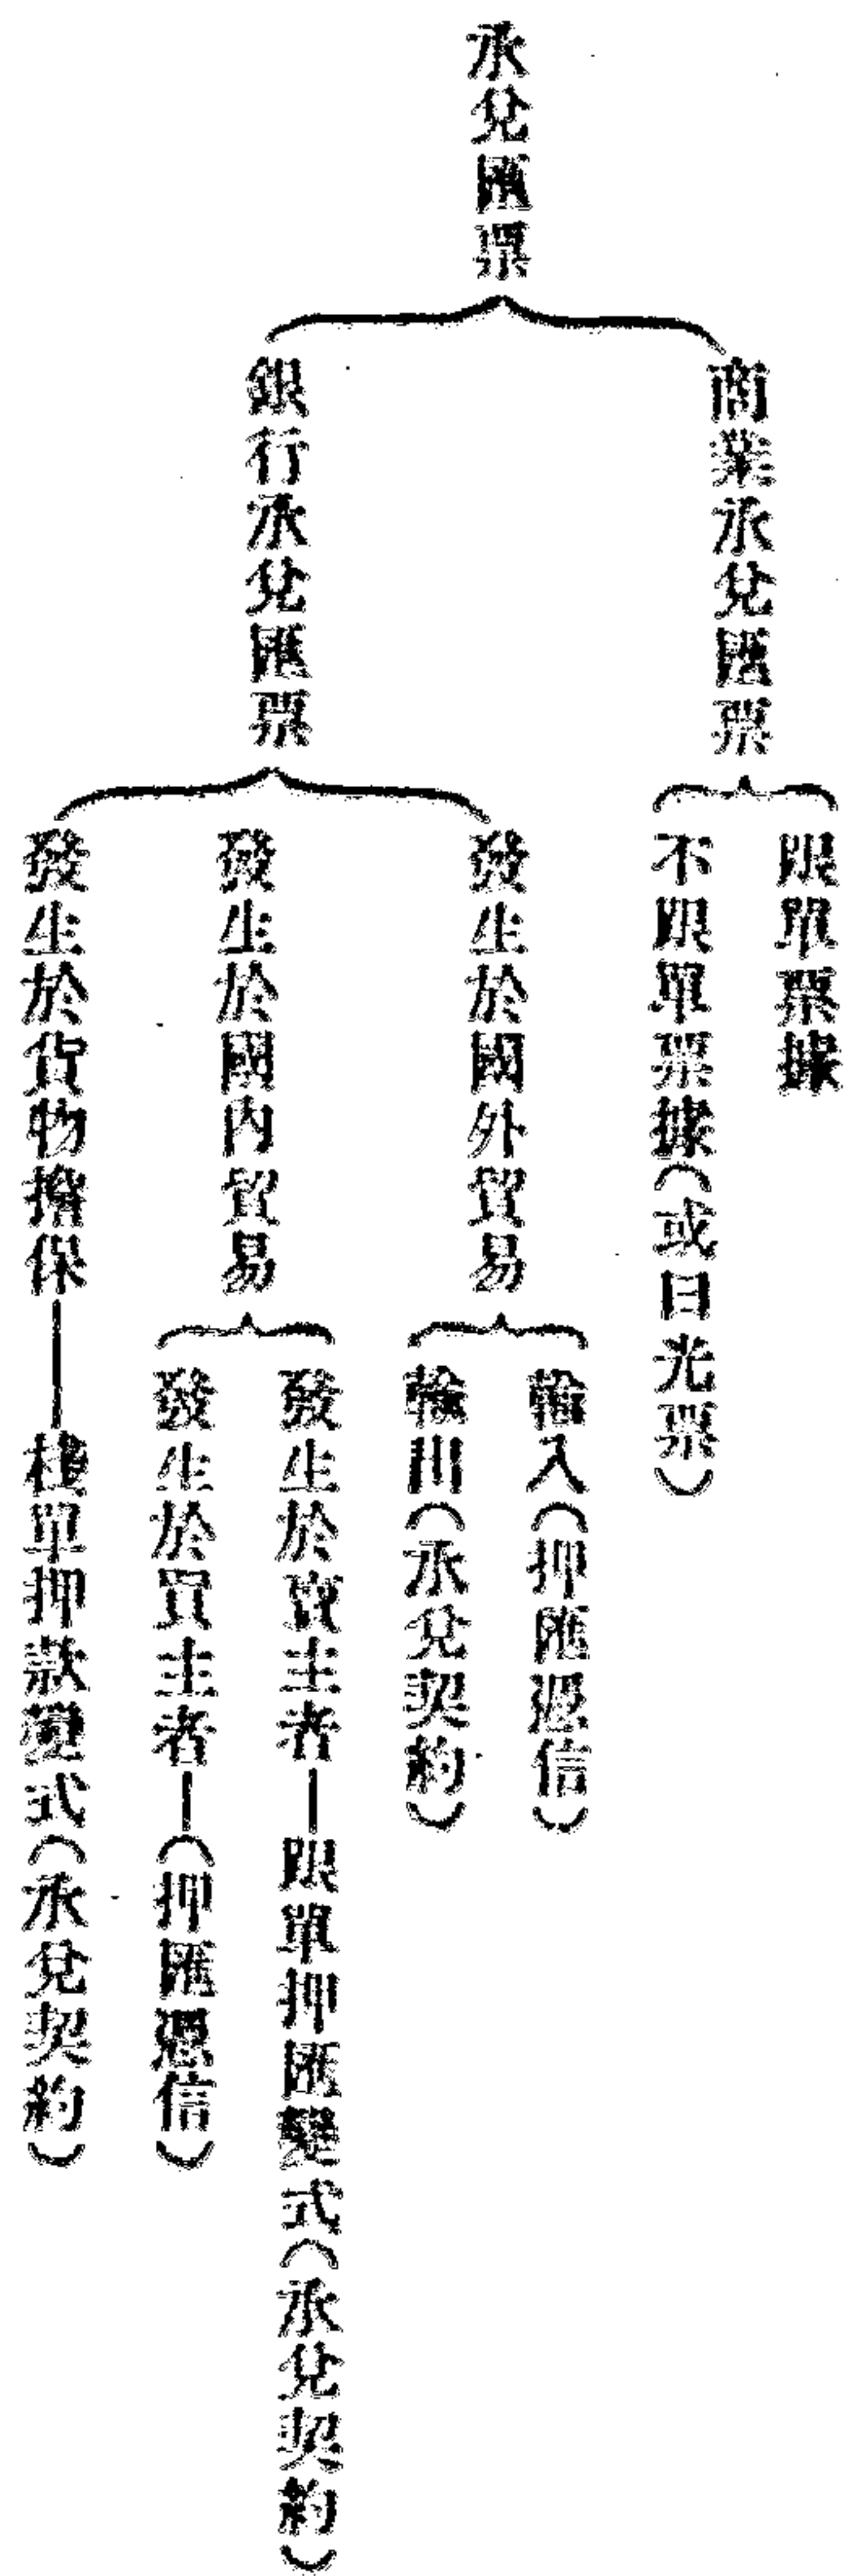 承兌匯票
商業承兌匯票
跟單票據
不跟單票據(或日光票)
銀行承兌匯票
發生於國外貿易
輸入(押匯憑信)
輸出(承兌契約)
發生於國內貿易
發生於賣主者—跟單押匯變式(承兌契約)
發生於買主者—(押匯憑信)
發生於貨物擔保——棧單押款變式(承兌契約)